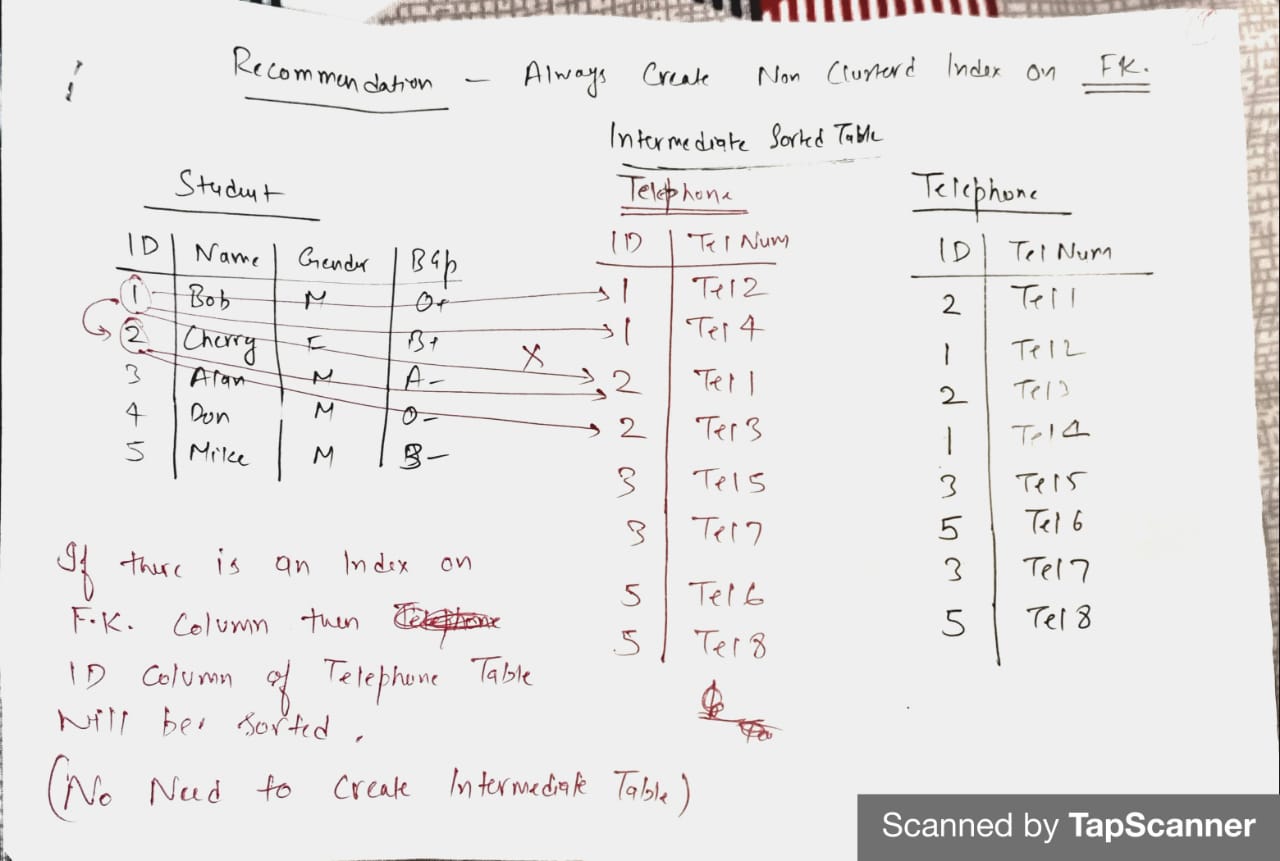 Recommendation - Always Create Non Clusterd Index on FK.
Intermediate Sorted Table
Student
ID Name Gender BGp
1 Bob M O+
2 Cherry F B+
3 Alan M A-
4 Don M O-
5 Mike M B-
X
Telephone
ID Tel Num
1 Tel 2
1 Tel 4
2 Tel 1
2 Tel 3
3 Tel 5
3 Tel 7
5 Tel 6
5 Tel 8
Telephone
ID Tel Num
2 Tel 1
1 Tel 2
2 Tel 3
1 Tel 4
3 Tel 5
5 Tel 6
3 Tel 7
5 Tel 8
If there is an Index on
F.K. Column then
ID Column of Telephone Table
Will be sorted.
(No Need to Create Intermediate Table)
Scanned by TapScanner